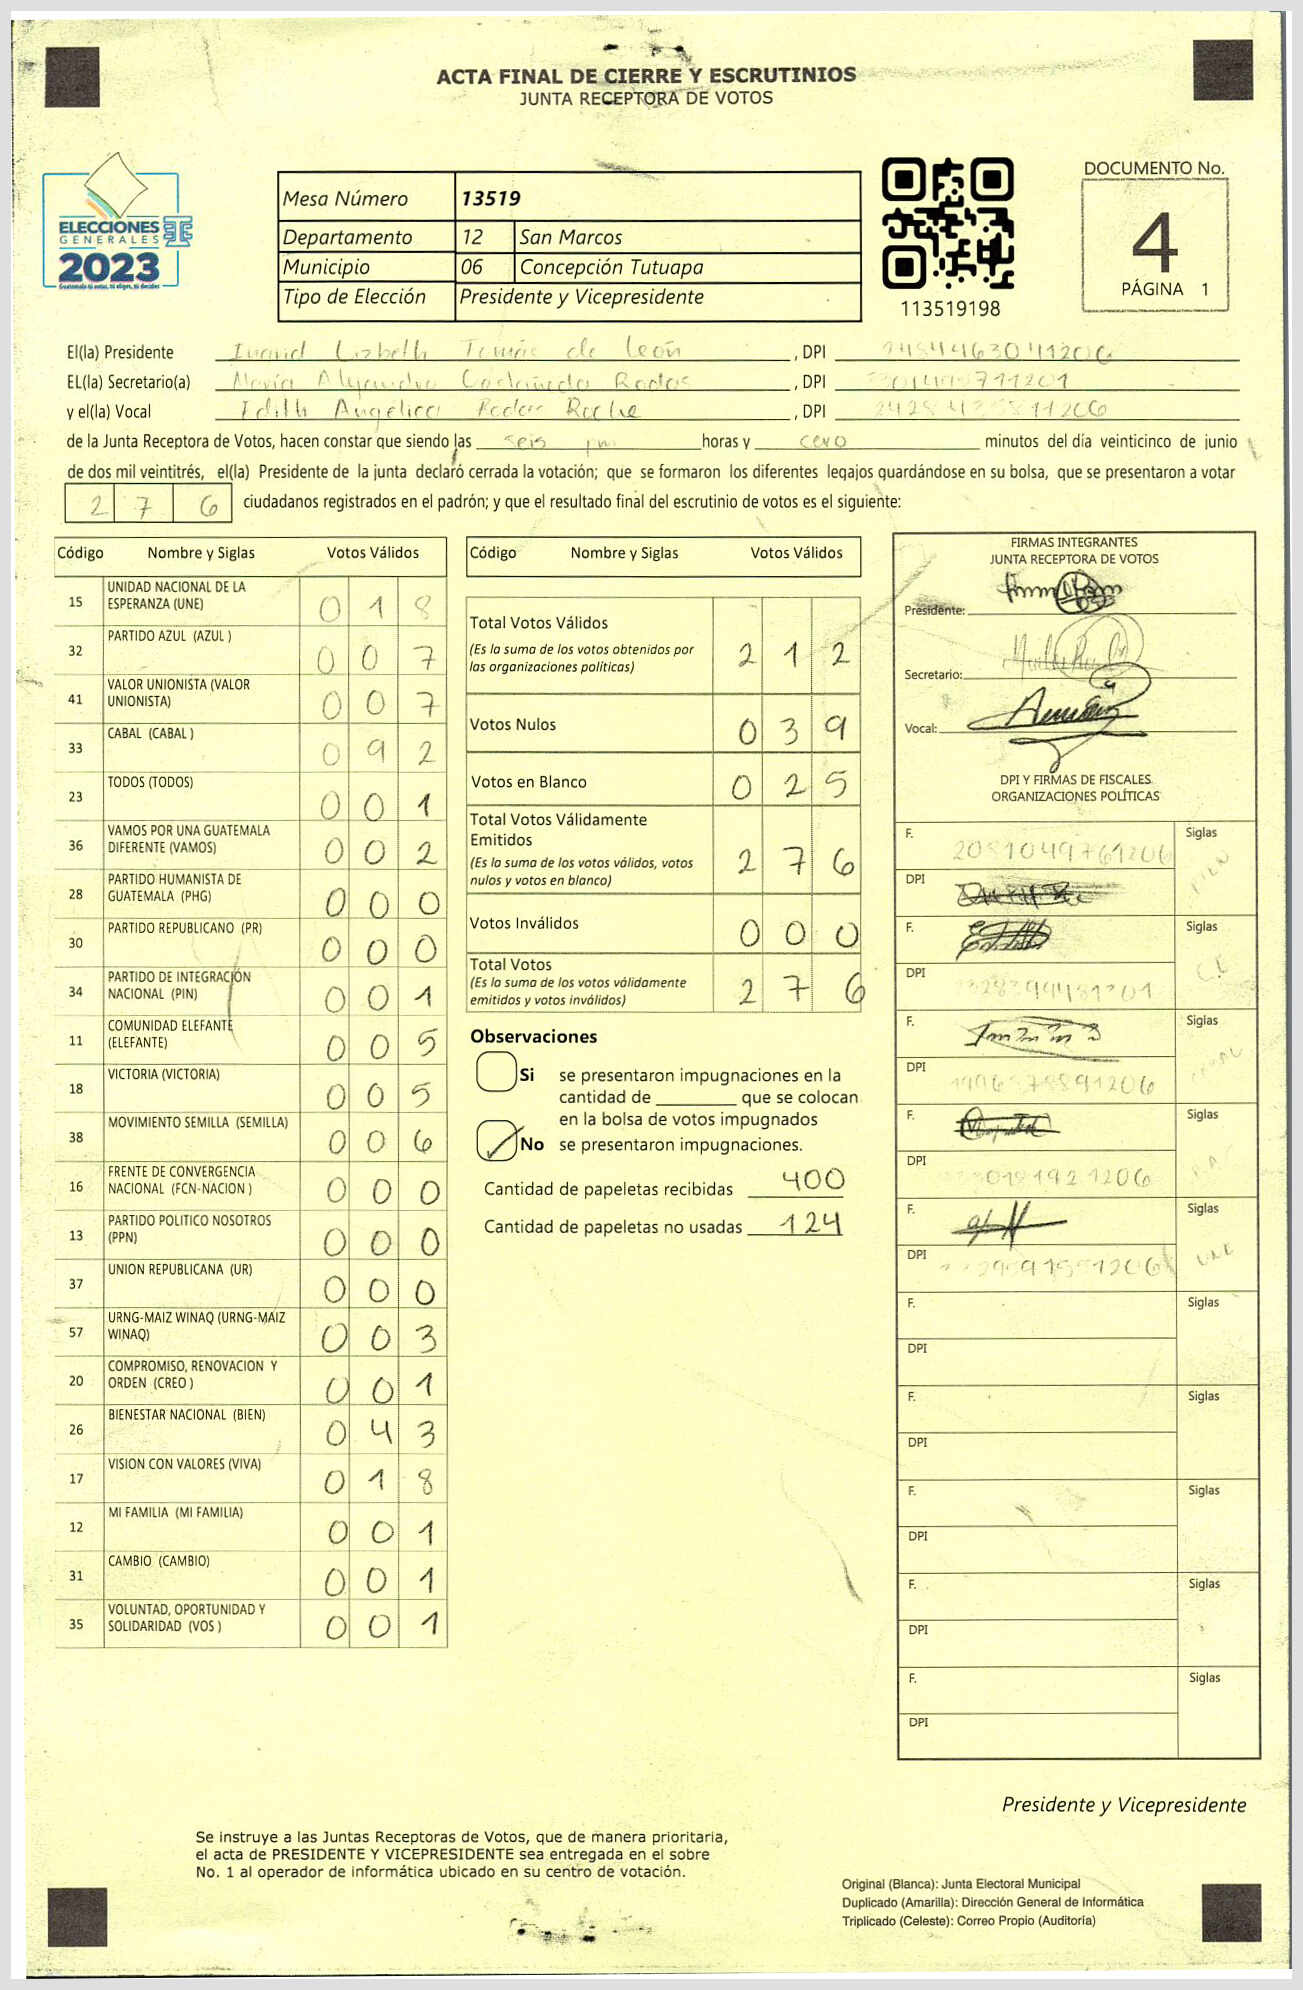 ACTA FINAL DE CIERRE Y ESCRUTINIOS
JUNTA RECEPTORA DE VOTOS
ELECCIONES
GENERALES
2023
Guatemala tú votas, tú eliges, tú decides
Mesa Número 13519
Departamento 12 San Marcos
Municipio 06 Concepción Tutuapa
Tipo de Elección Presidente y Vicepresidente
113519198
DOCUMENTO No.
4
PÁGINA 1
El(la) Presidente Ingrid Lizbeth Tomás de León, DPI
EL(la) Secretario(a) María Alejandra Castañeda Rodas, DPI
y el(la) Vocal Edith Angélica Rodas Roche, DPI
de la Junta Receptora de Votos, hacen constar que siendo las seis pm horas y cero minutos del día veinticinco de junio
de dos mil veintitrés, el(la) Presidente de la junta declaró cerrada la votación; que se formaron los diferentes legajos guardándose en su bolsa, que se presentaron a votar
276 ciudadanos registrados en el padrón; y que el resultado final del escrutinio de votos es el siguiente:
Código Nombre y Siglas Votos Válidos
15 UNIDAD NACIONAL DE LA ESPERANZA (UNE) 018
32 PARTIDO AZUL (AZUL ) 007
41 VALOR UNIONISTA (VALOR UNIONISTA) 007
33 CABAL (CABAL ) 092
23 TODOS (TODOS) 001
36 VAMOS POR UNA GUATEMALA DIFERENTE (VAMOS) 002
28 PARTIDO HUMANISTA DE GUATEMALA (PHG) 000
30 PARTIDO REPUBLICANO (PR) 000
34 PARTIDO DE INTEGRACIÓN NACIONAL (PIN) 001
11 COMUNIDAD ELEFANTE (ELEFANTE) 005
18 VICTORIA (VICTORIA) 005
38 MOVIMIENTO SEMILLA (SEMILLA) 006
16 FRENTE DE CONVERGENCIA NACIONAL (FCN-NACION ) 000
13 PARTIDO POLITICO NOSOTROS (PPN) 000
37 UNION REPUBLICANA (UR) 000
57 URNG-MAIZ WINAQ (URNG-MAIZ WINAQ) 003
20 COMPROMISO, RENOVACION Y ORDEN (CREO ) 001
26 BIENESTAR NACIONAL (BIEN) 043
17 VISION CON VALORES (VIVA) 018
12 MI FAMILIA (MI FAMILIA) 001
31 CAMBIO (CAMBIO) 001
35 VOLUNTAD, OPORTUNIDAD Y SOLIDARIDAD (VOS ) 001
Código Nombre y Siglas Votos Válidos
Total Votos Válidos 212
(Es la suma de los votos obtenidos por
las organizaciones políticas)
Votos Nulos 039
Votos en Blanco 025
Total Votos Válidamente
Emitidos 276
(Es la suma de los votos válidos, votos
nulos y votos en blanco)
Votos Inválidos 000
Total Votos 276
(Es la suma de los votos válidamente
emitidos y votos inválidos)
Observaciones
Si se presentaron impugnaciones en la
cantidad de ________ que se colocan
en la bolsa de votos impugnados
No se presentaron impugnaciones.
Cantidad de papeletas recibidas 400
Cantidad de papeletas no usadas 124
FIRMAS INTEGRANTES
JUNTA RECEPTORA DE VOTOS
Presidente:
Secretario:
Vocal:
DPI Y FIRMAS DE FISCALES
ORGANIZACIONES POLÍTICAS
F. 2081049761206 Siglas
DPI
F. Siglas
DPI
F. Siglas
DPI
F. Siglas
DPI
F. Siglas
DPI
UNE
F. Siglas
DPI
F. Siglas
DPI
F. Siglas
DPI
F. Siglas
DPI
F. Siglas
DPI
Presidente y Vicepresidente
Se instruye a las Juntas Receptoras de Votos, que de manera prioritaria,
el acta de PRESIDENTE Y VICEPRESIDENTE sea entregada en el sobre
No. 1 al operador de informática ubicado en su centro de votación.
Original (Blanca): Junta Electoral Municipal
Duplicado (Amarilla): Dirección General de Informática
Triplicado (Celeste): Correo Propio (Auditoría)